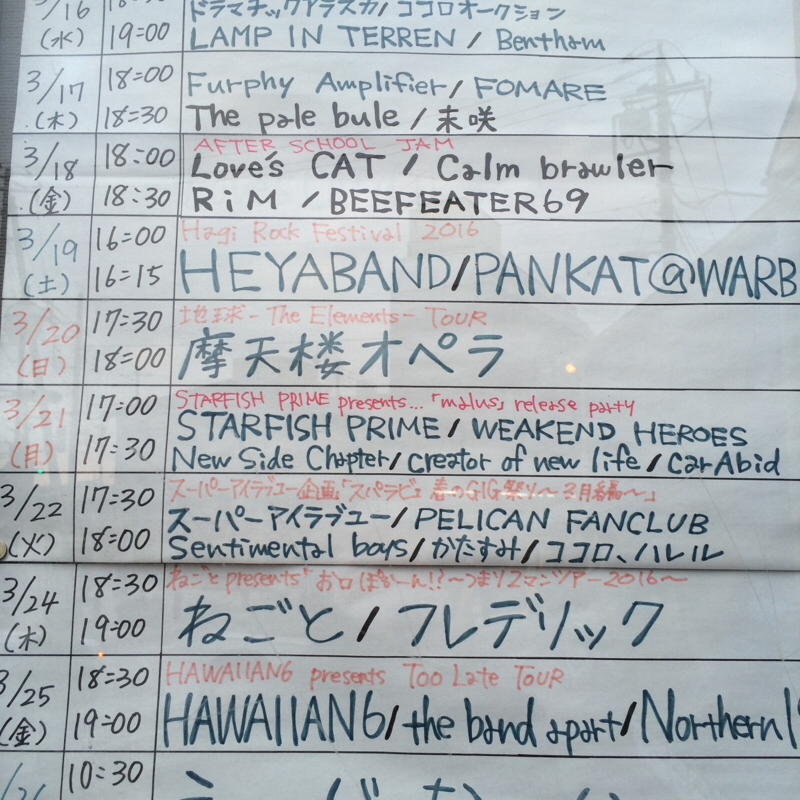 3/16 ドラマチックアラスカ/ココロオークション
(水) 19=00 LAMP IN TERREN / Bentham
3/17 18=00 Furphy Amplifier/ FOMARE
(木) 18=30 The pale bule / 末咲
AFTER SCHOOL JAM
3/18 18:00 Love's CAT / Calm brawler
(金) 18:30 RiM / BEEFEATER69
3/19 16=00 Hagi Rock Festival 2016
(土) 16=15 HEYABAND/PANKAT@WARB
3/20 17=30 地球 - The Elements - TOUR
(日) 18=00 摩天楼オペラ
3/21 17=00 STARFISH PRIME presents...「malus」release party
STARFISH PRIME / WEAKEND HEROES
(月) 17=30 New Side Chapter/creator of new life/Car Abid
3/22 17=30 スーパーアイラブユー企画「スパラビュ 春のGIG祭り〜3月編〜」
スーパーアイラブユー/ PELICAN FANCLUB
(火) 18=00 Sentimental boys/かたすみ/ココロ、ハレル
3/24 18=30 ねごと presents"お口ぽかーん!?〜つまり2マンツアー2016〜
(木) 19=00 ねごと/フレデリック
3/25 18=30 HAWAIIAN6 presents Too Late TOUR
(金) 19=00 HAWAIIAN6/the band apart/Northern
10=30